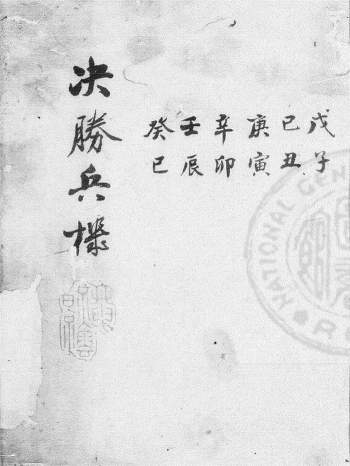 戊子
己丑
庚寅
辛卯
壬辰
癸巳
决勝兵機
NATIONAL CEN